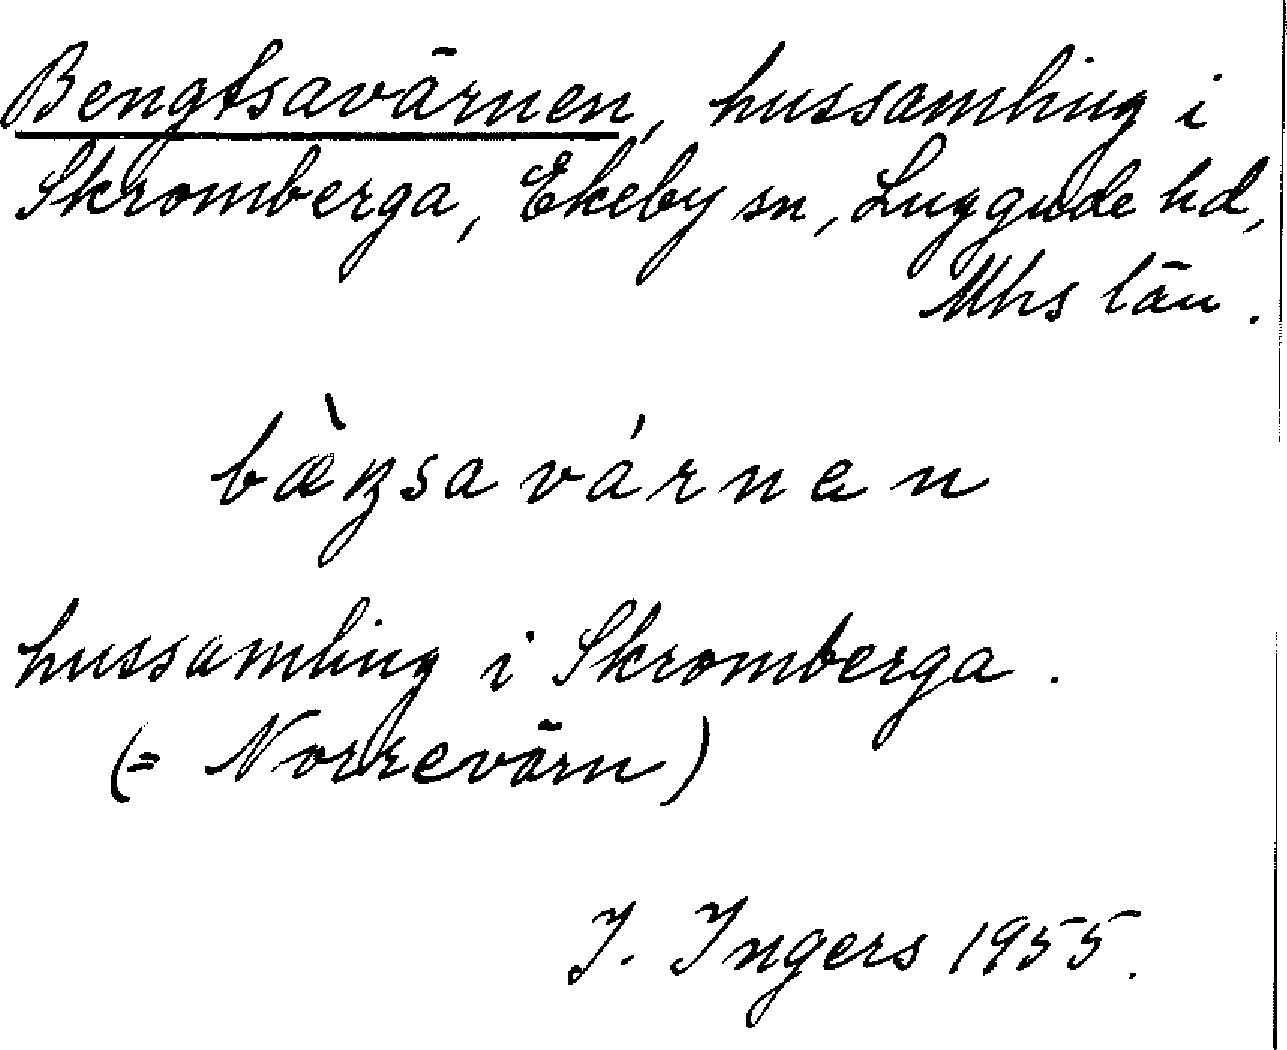 Bengtsavärnen, hussamling i
Skromberga, Ekeby sn, Luggude hd,
Mhs län.
bæ̀ŋsavárnan
hussamling i Skromberga.
(= Norrevärn)
I. Ingers 1955.